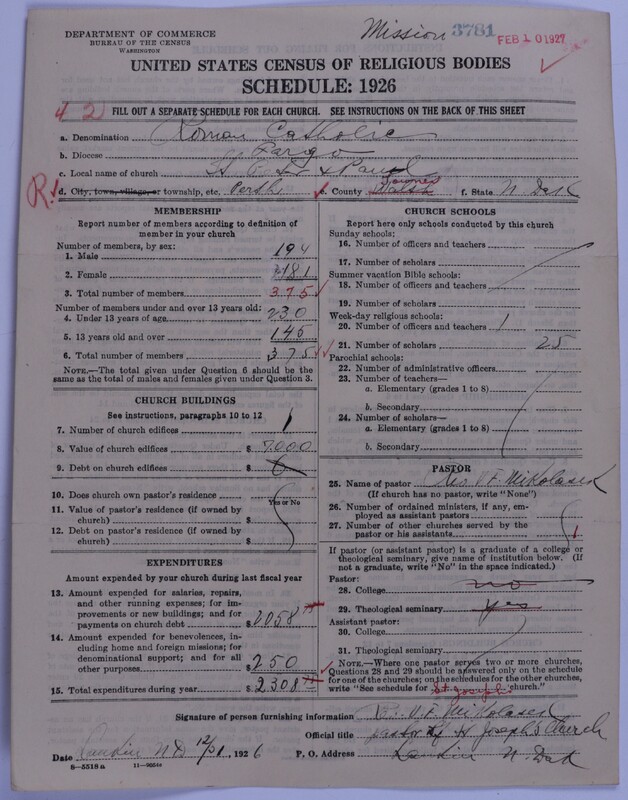 Mission 3781 FEB 10 1927
DEPARTMENT OF COMMERCE
BUREAU OF THE CENSUS
WASHINGTON
UNITED STATES CENSUS OF RELIGIOUS BODIES
SCHEDULE: 1926
42
FILL OUT A SEPARATE SCHEDULE FOR EACH CHURCH. SEE INSTRUCTIONS ON THE BACK OF THIS SHEET
a. Denomination Roman Catholic
b. Diocese Fargo
c. Local name of church St Peter & Paul
R. d. City, town, village, or township, etc. Perth County Walsh Towner f. State N. Dak
MEMBERSHIP
Report number of members according to definition of
member in your church
Number of members, by sex:
1. Male 194
2. Female 181
3. Total number of members 375
Number of members under and over 13 years old:
4. Under 13 years of age 230
5. 13 years old and over 145
6. Total number of members 375
NOTE.—The total given under Question 6 should be the
same as the total of males and females given under Question 3.
CHURCH BUILDINGS
See instructions, paragraphs 10 to 12
7. Number of church edifices 1
8. Value of church edifices $ 7000
9. Debt on church edifices $ 0
10. Does church own pastor's residence
Yes or No
11. Value of pastor's residence (if owned by
church) $
12. Debt on pastor's residence (if owned by
church) $
EXPENDITURES
Amount expended by your church during last fiscal year
13. Amount expended for salaries, repairs,
and other running expenses; for im-
provements or new buildings; and for
payments on church debt $ 2058
14. Amount expended for benevolences,
including home and foreign missions; for
denominational support; and for all
other purposes $ 250
15. Total expenditures during year $ 2308
CHURCH SCHOOLS
Report here only schools conducted by this church
Sunday schools:
16. Number of officers and teachers
17. Number of scholars
Summer vacation Bible schools:
18. Number of officers and teachers
19. Number of scholars
Week-day religious schools:
20. Number of officers and teachers 1
21. Number of scholars 25
Parochial schools:
22. Number of administrative officers
23. Number of teachers—
a. Elementary (grades 1 to 8)
b. Secondary
24. Number of scholars—
a. Elementary (grades 1 to 8)
b. Secondary
PASTOR
25. Name of pastor Rev. V. F. Mikolasek
(If church has no pastor, write "None")
26. Number of ordained ministers, if any, em-
ployed as assistant pastors
27. Number of other churches served by the
pastor or his assistants 1
If pastor (or assistant pastor) is a graduate of a college or
theological seminary, give name of institution below. (If
not a graduate, write "No" in the space indicated.)
Pastor:
28. College no
29. Theological seminary yes
Assistant pastor:
30. College
31. Theological seminary
NOTE.—Where one pastor serves two or more churches,
Questions 28 and 29 should be answered only on the schedule
for one of the churches; on the schedules for the other churches,
write "See schedule for St. Joseph's church."
Signature of person furnishing information Rev. V. F. Mikolasek
Official title pastor of St Joseph's Church
Date Lankin ND 12/31, 1926 P. O. Address Lankin N. Dak
8—5518 a